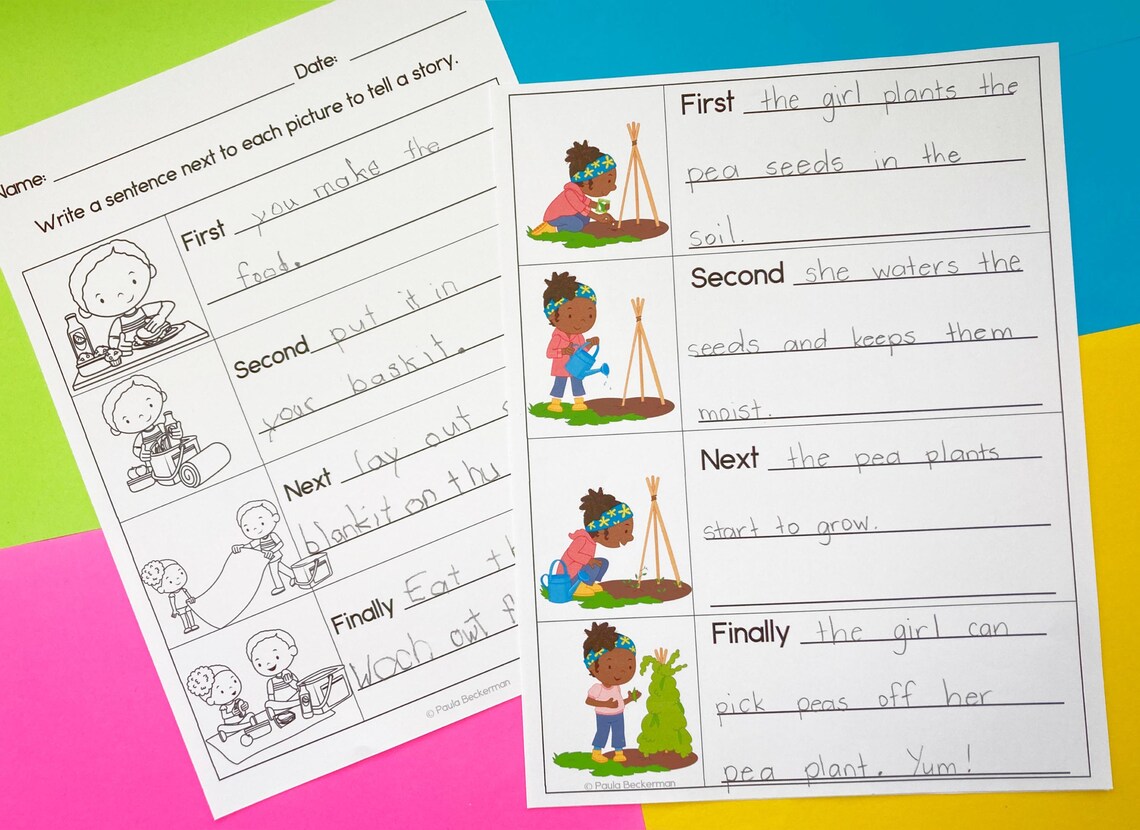 Name:
Date:
Write a sentence next to each picture to tell a story.
First you make the
food.
Second put it in
your baskit.
Next lay out
blankit on thu
Finally Eat
Woch out
© Paula Beckerman
First the girl plants the
pea seeds in the
soil.
Second she waters the
seeds and keeps them
moist.
Next the pea plants
start to grow.
Finally the girl can
pick peas off her
pea plant. Yum!
© Paula Beckerman